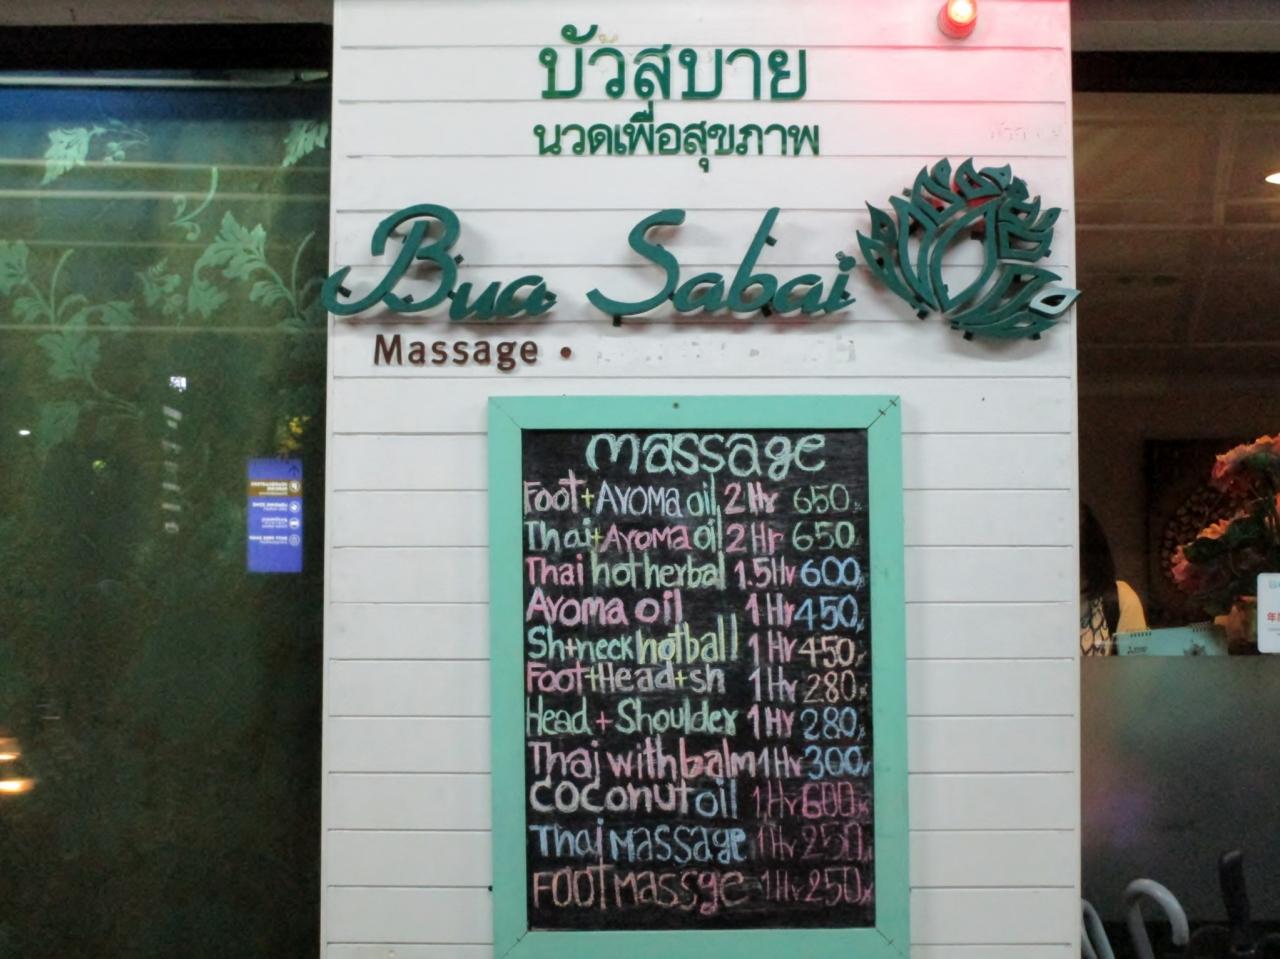 บัวสบาย
นวดเพื่อสุขภาพ
Bua Sabai
Massage •
massage
Foot + Aroma oil 2 Hr 650.
Thai + Aroma oil 2 Hr 650.
Thai hot herbal 1.5 Hr 600.
Aroma oil 1 Hr 450.
Sh+neck hotball 1 Hr 450.
Foot+Head+sh 1 Hr 280.
Head + Shoulder 1 Hr 280.
Thai with balm 1 Hr 300.
coconut oil 1 Hr 600.
Thai Massage 1 Hr 250.
FOOT Massge 1 Hr 250.